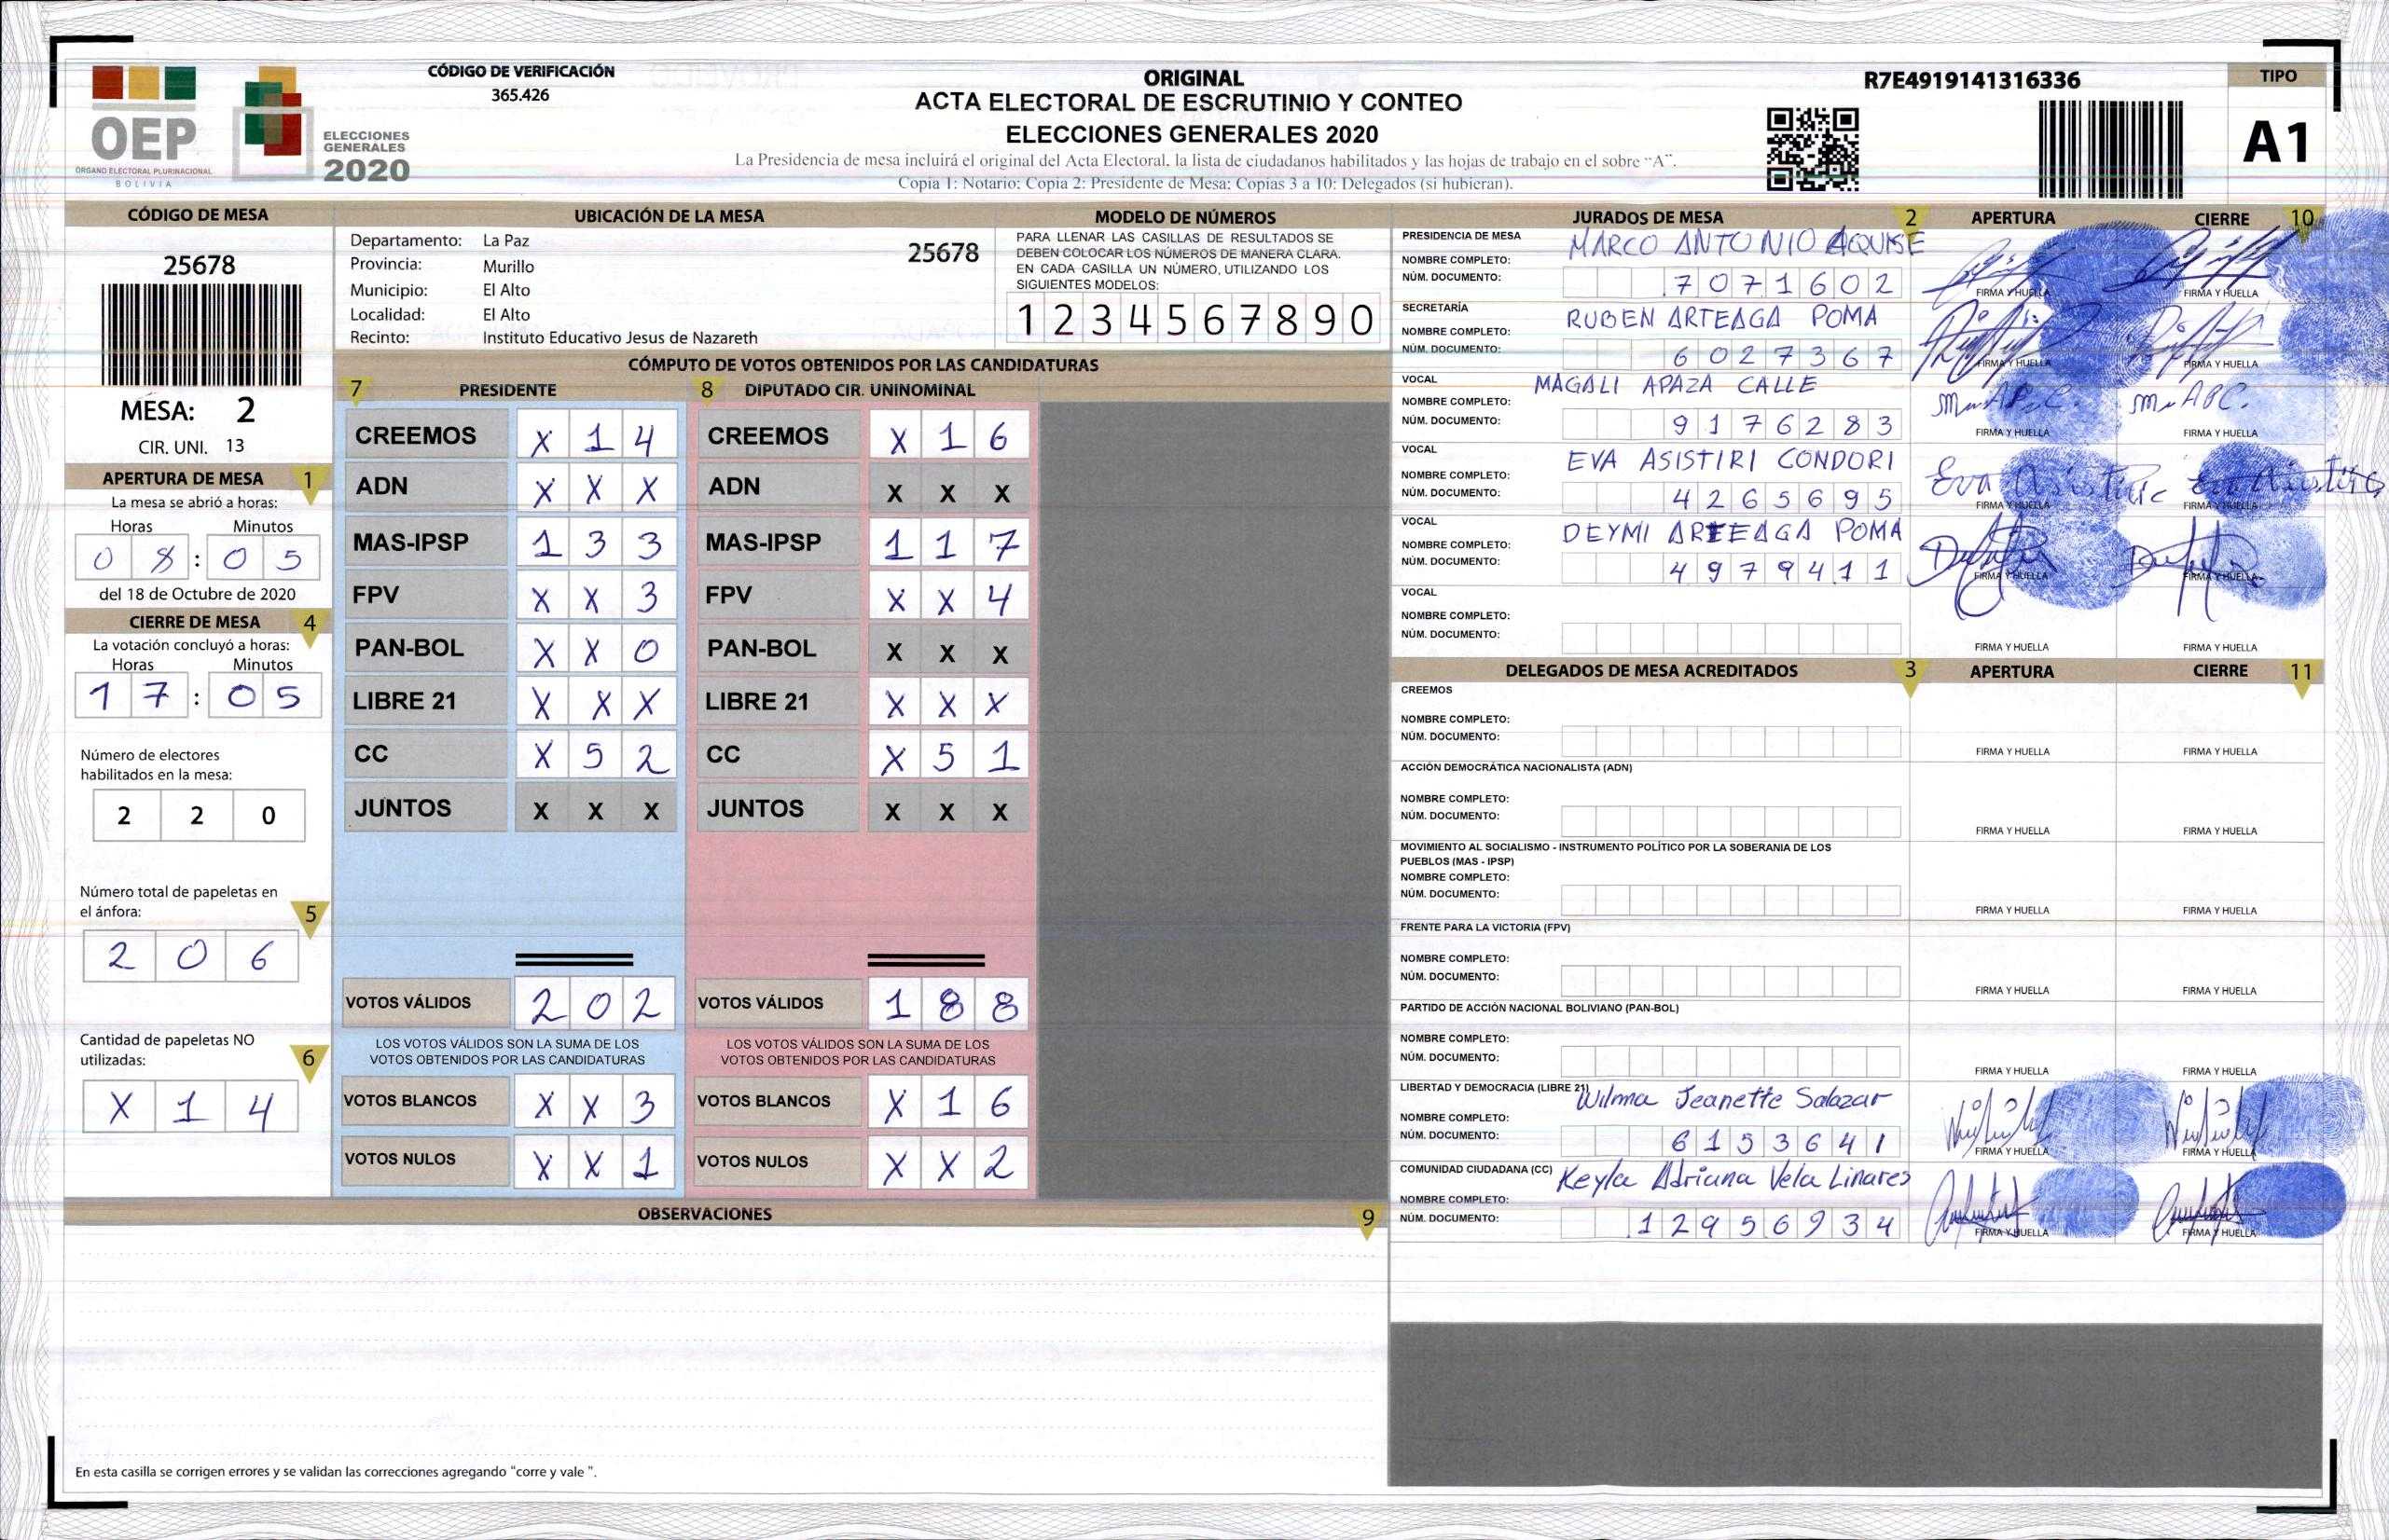 CÓDIGO DE VERIFICACIÓN
365.426
OEP
ÓRGANO ELECTORAL PLURINACIONAL
BOLIVIA
ELECCIONES
GENERALES
2020
ORIGINAL
ACTA ELECTORAL DE ESCRUTINIO Y CONTEO
ELECCIONES GENERALES 2020
La Presidencia de mesa incluirá el original del Acta Electoral, la lista de ciudadanos habilitados y las hojas de trabajo en el sobre "A".
Copia 1: Notario; Copia 2: Presidente de Mesa; Copias 3 a 10: Delegados (si hubieran).
R7E4919141316336
TIPO
A1
CÓDIGO DE MESA
25678
MESA: 2
CIR. UNI. 13
APERTURA DE MESA 1
La mesa se abrió a horas:
Horas Minutos
0 8 : 0 5
del 18 de Octubre de 2020
CIERRE DE MESA 4
La votación concluyó a horas:
Horas Minutos
1 7 : 0 5
Número de electores
habilitados en la mesa:
2 2 0
Número total de papeletas en
el ánfora: 5
2 0 6
Cantidad de papeletas NO
utilizadas: 6
X 1 4
UBICACIÓN DE LA MESA
Departamento: La Paz 25678
Provincia: Murillo
Municipio: El Alto
Localidad: El Alto
Recinto: Instituto Educativo Jesus de Nazareth
MODELO DE NÚMEROS
PARA LLENAR LAS CASILLAS DE RESULTADOS SE
DEBEN COLOCAR LOS NÚMEROS DE MANERA CLARA.
EN CADA CASILLA UN NÚMERO, UTILIZANDO LOS
SIGUIENTES MODELOS:
1 2 3 4 5 6 7 8 9 0
CÓMPUTO DE VOTOS OBTENIDOS POR LAS CANDIDATURAS
7 PRESIDENTE 8 DIPUTADO CIR. UNINOMINAL
CREEMOS X 1 4 CREEMOS X 1 6
ADN X X X ADN X X X
MAS-IPSP 1 3 3 MAS-IPSP 1 1 7
FPV X X 3 FPV X X 4
PAN-BOL X X 0 PAN-BOL X X X
LIBRE 21 X X X LIBRE 21 X X X
CC X 5 2 CC X 5 1
JUNTOS X X X JUNTOS X X X
VOTOS VÁLIDOS 2 0 2 VOTOS VÁLIDOS 1 8 8
LOS VOTOS VÁLIDOS SON LA SUMA DE LOS LOS VOTOS VÁLIDOS SON LA SUMA DE LOS
VOTOS OBTENIDOS POR LAS CANDIDATURAS VOTOS OBTENIDOS POR LAS CANDIDATURAS
VOTOS BLANCOS X X 3 VOTOS BLANCOS X 1 6
VOTOS NULOS X X 1 VOTOS NULOS X X 2
OBSERVACIONES 9
En esta casilla se corrigen errores y se validan las correcciones agregando "corre y vale ".
JURADOS DE MESA 2 APERTURA CIERRE 10
PRESIDENCIA DE MESA MARCO ANTONIO AQUISE
NOMBRE COMPLETO:
NÚM. DOCUMENTO: 7 0 7 1 6 0 2 FIRMA Y HUELLA FIRMA Y HUELLA
SECRETARÍA RUBEN ARTEAGA POMA
NOMBRE COMPLETO:
NÚM. DOCUMENTO: 6 0 2 7 3 6 7 FIRMA Y HUELLA FIRMA Y HUELLA
VOCAL MAGALI APAZA CALLE
NOMBRE COMPLETO:
NÚM. DOCUMENTO: 9 1 7 6 2 8 3 FIRMA Y HUELLA FIRMA Y HUELLA
VOCAL EVA ASISTIRI CONDORI
NOMBRE COMPLETO:
NÚM. DOCUMENTO: 4 2 6 5 6 9 5 FIRMA Y HUELLA FIRMA Y HUELLA
VOCAL DEYMI ARTEAGA POMA
NOMBRE COMPLETO:
NÚM. DOCUMENTO: 4 9 7 9 4 1 1 FIRMA Y HUELLA FIRMA Y HUELLA
VOCAL
NOMBRE COMPLETO:
NÚM. DOCUMENTO: FIRMA Y HUELLA FIRMA Y HUELLA
DELEGADOS DE MESA ACREDITADOS 3 APERTURA CIERRE 11
CREEMOS
NOMBRE COMPLETO:
NÚM. DOCUMENTO: FIRMA Y HUELLA FIRMA Y HUELLA
ACCIÓN DEMOCRÁTICA NACIONALISTA (ADN)
NOMBRE COMPLETO:
NÚM. DOCUMENTO: FIRMA Y HUELLA FIRMA Y HUELLA
MOVIMIENTO AL SOCIALISMO - INSTRUMENTO POLÍTICO POR LA SOBERANIA DE LOS
PUEBLOS (MAS - IPSP)
NOMBRE COMPLETO:
NÚM. DOCUMENTO: FIRMA Y HUELLA FIRMA Y HUELLA
FRENTE PARA LA VICTORIA (FPV)
NOMBRE COMPLETO:
NÚM. DOCUMENTO: FIRMA Y HUELLA FIRMA Y HUELLA
PARTIDO DE ACCIÓN NACIONAL BOLIVIANO (PAN-BOL)
NOMBRE COMPLETO:
NÚM. DOCUMENTO: FIRMA Y HUELLA FIRMA Y HUELLA
LIBERTAD Y DEMOCRACIA (LIBRE 21) Wilma Jeanette Salazar
NOMBRE COMPLETO:
NÚM. DOCUMENTO: 6 1 5 3 6 4 1 FIRMA Y HUELLA FIRMA Y HUELLA
COMUNIDAD CIUDADANA (CC) Keyla Adriana Vela Linares
NOMBRE COMPLETO:
NÚM. DOCUMENTO: 1 2 9 5 6 9 3 4 FIRMA Y HUELLA FIRMA Y HUELLA